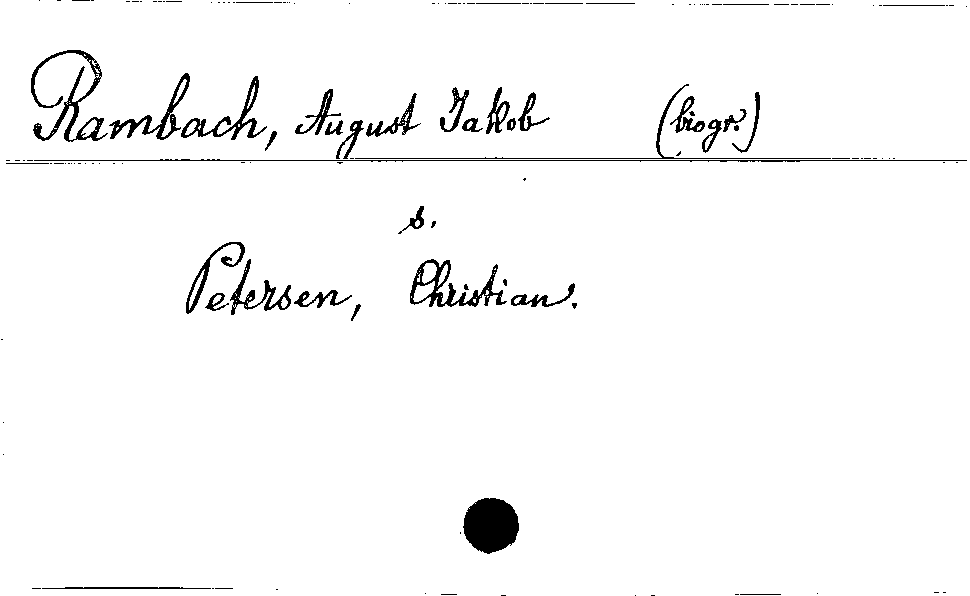 Rambach, August Jakob (biogr.)
s.
Petersen, Christian.